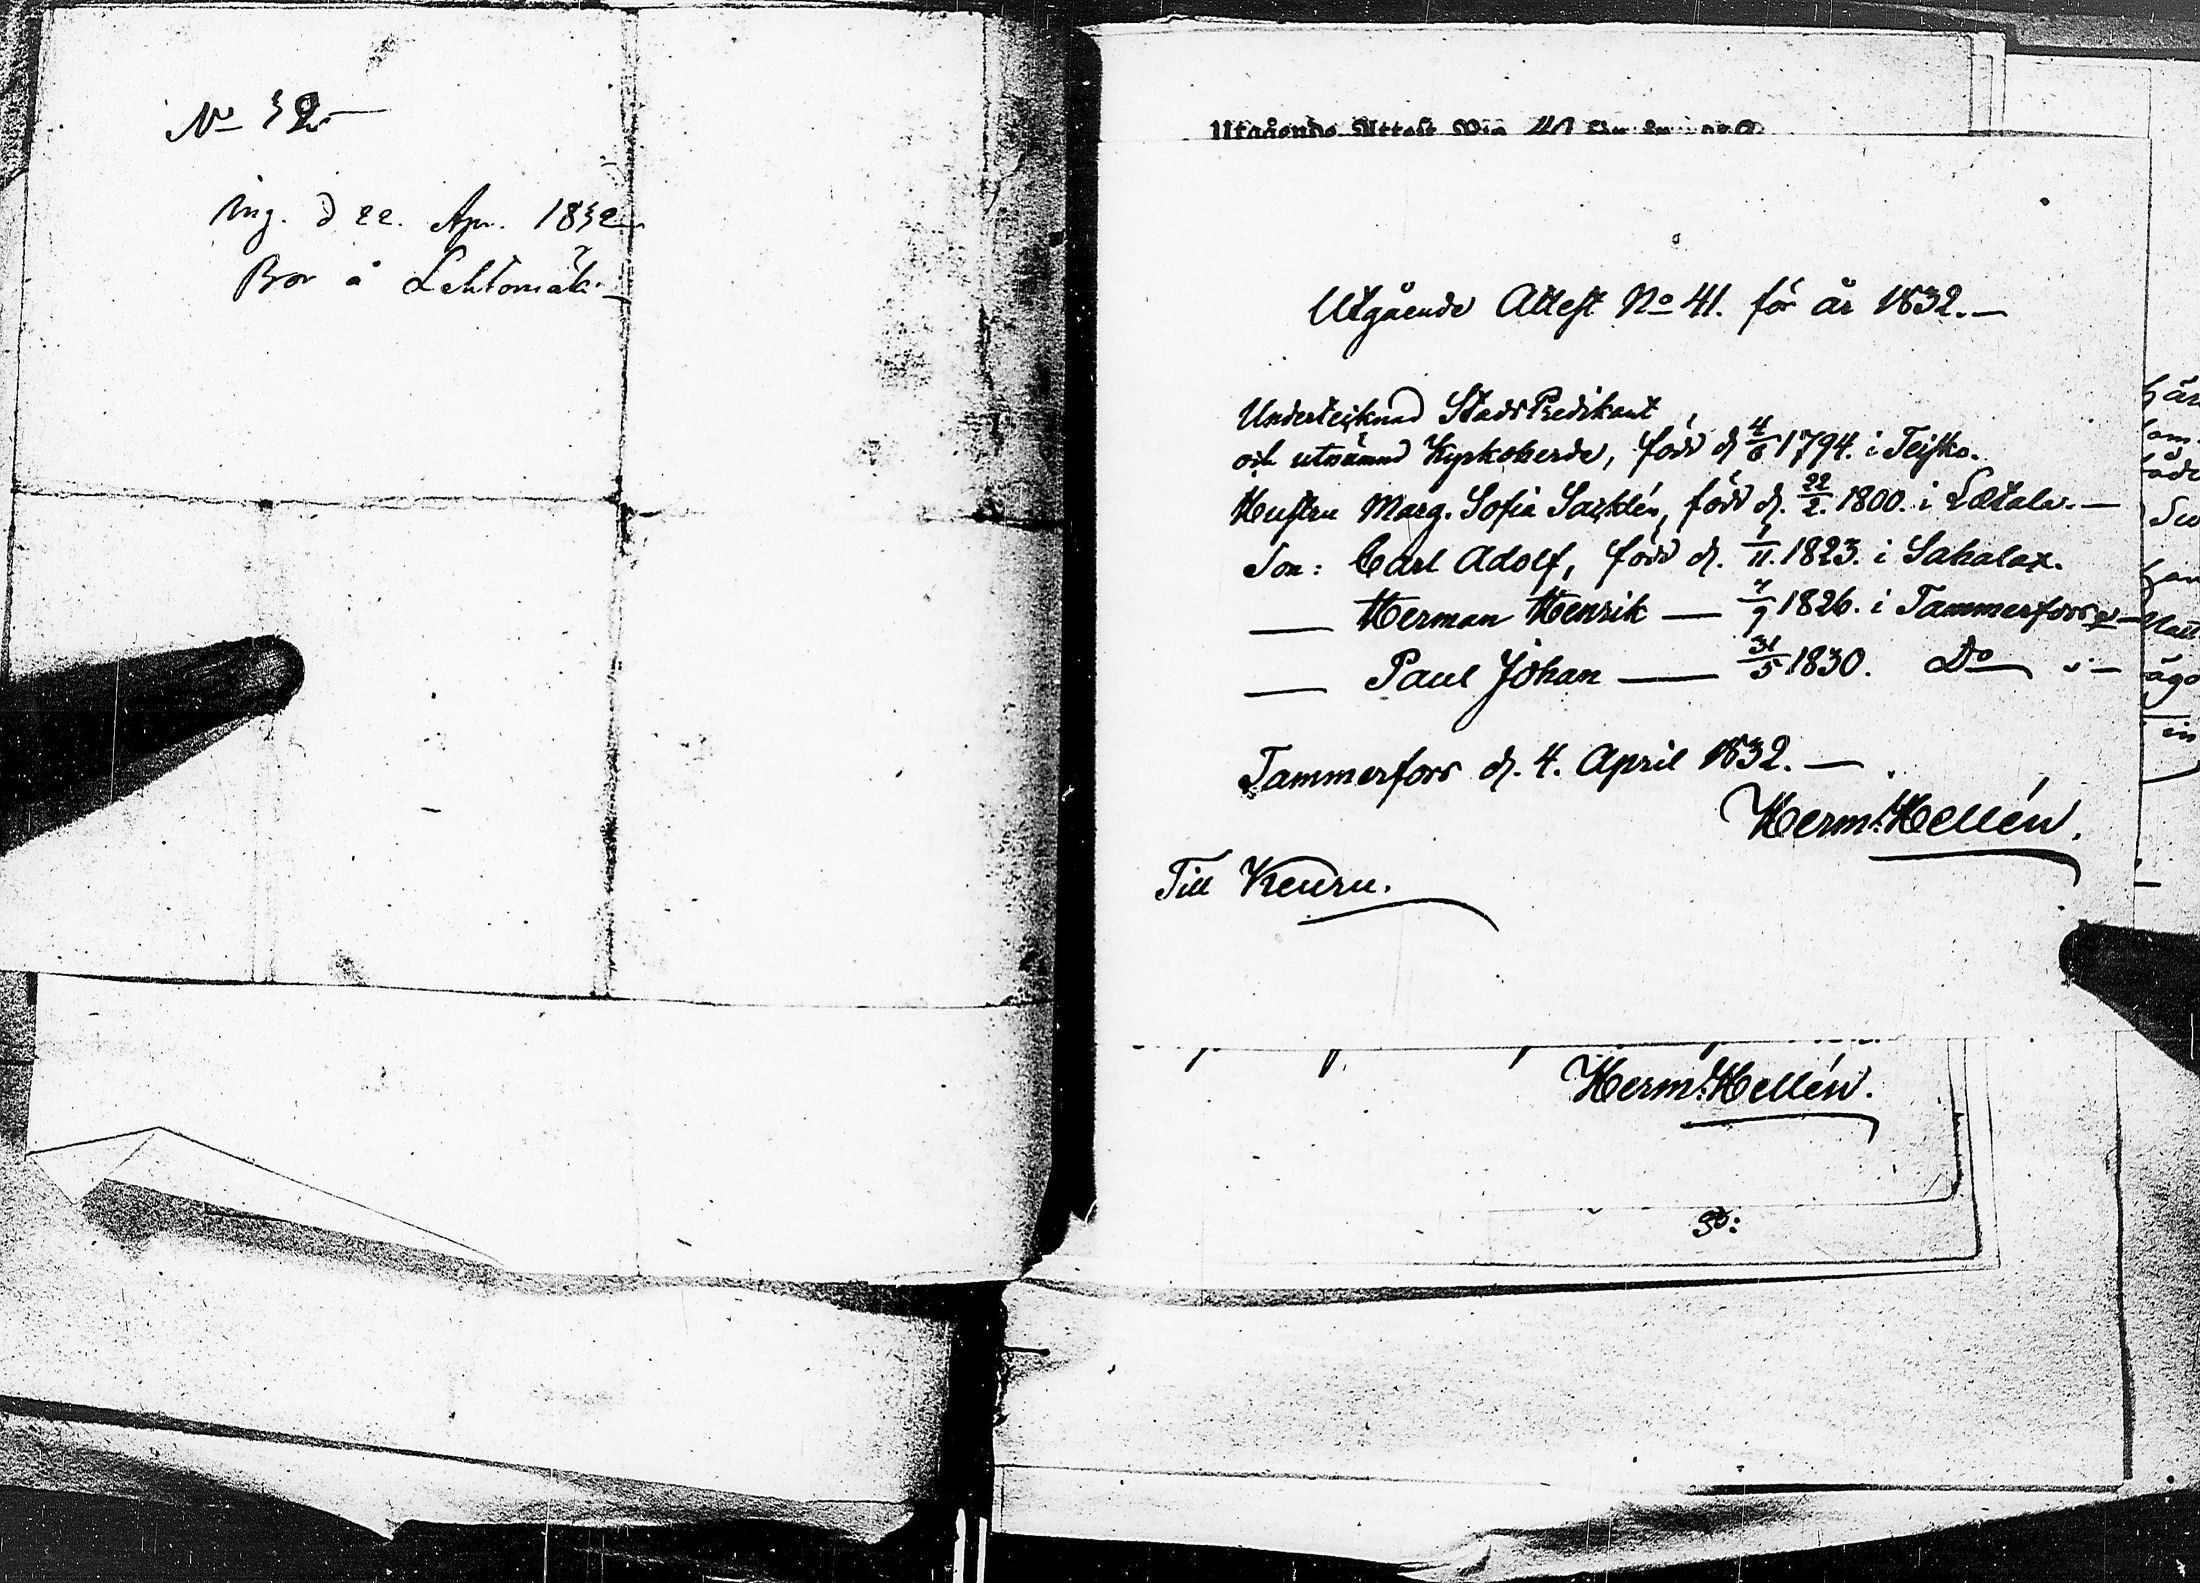 No 32
Ing. d 22. Apr. 1832
Bor å Lehtomäki
Utgående Attest No 40
Utgående Attest No 41. för år 1832.—
Underteiknad StadsPredikant
och utnämnd Kyrkoherde, född d. 4/6 1794. i Teisko.
Hustru Marg. Sofia Sacklén, född d. 22/2. 1800. i Letala.—
Son: Carl Adolf, född d. 1/11. 1823. i Sahalax.
— Herman Henrik — 7/9 1826. i Tammerfors
— Paul Johan — 31/5 1830. Do —
Tammerfors d. 4. April 1832.—
Herm: Hellén.
Till Keuru.
Herm: Hellén.